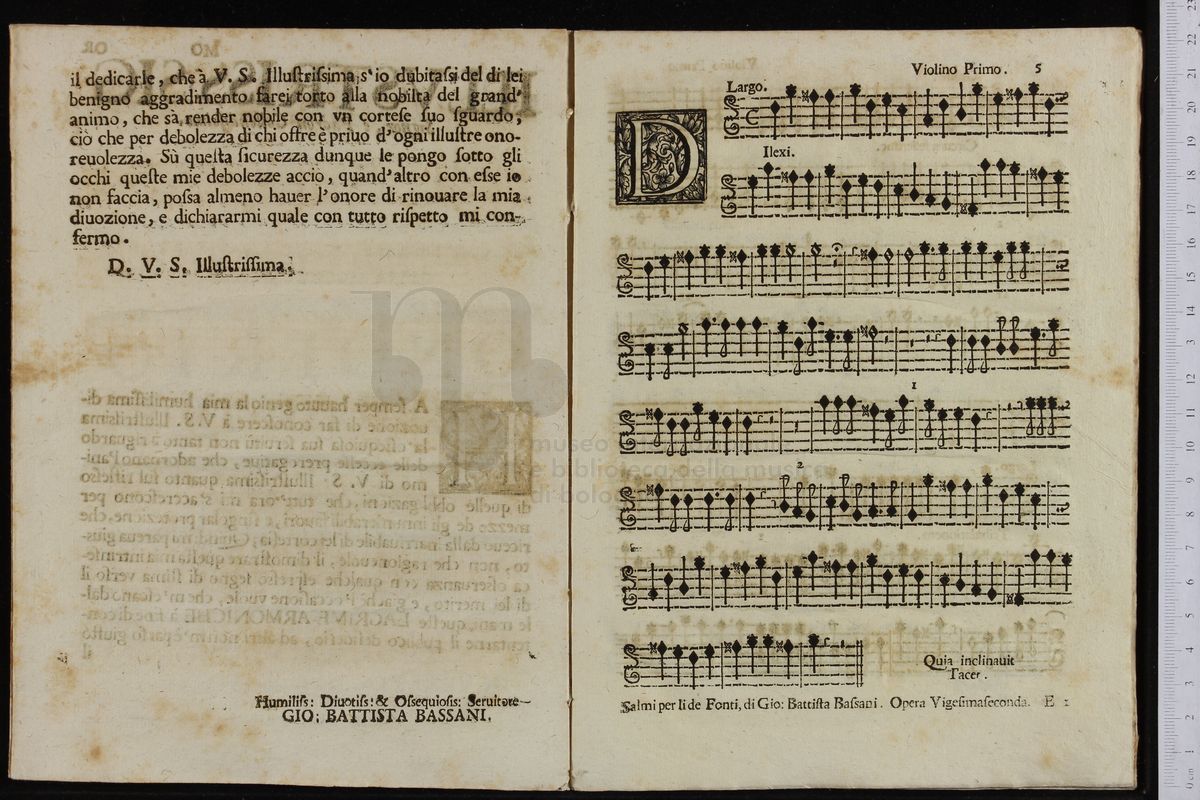 il dedicarle, che à V. S. Illuſtriſsima; s'io dubitaſsi del di lei
benigno aggradimento farei torto alla nobiltà del grand'
animo, che sà render nobile con vn corteſe ſuo ſguardo,
ciò che per debolezza di chi offre è priuo d'ogni illuſtre ono-
reuolezza. Sù queſta ſicurezza dunque le pongo ſotto gli
occhi queſte mie debolezze accio, quand'altro con eſſe io
non faccia, poſsa almeno hauer l'onore di rinouare la mia
diuozione, e dichiararmi quale con tutto riſpetto mi con-
fermo.
D. V. S. Illuſtriſsima.
Humiliſs: Diuotiſs: & Oſsequioſis: Seruitore
GIO: BATTISTA BASSANI.
Violino Primo. 5
Largo.
D
Ilexi.
1
2
Quia inclinauit
Tacet.
Salmi per li de Fonti, di Gio: Battiſta Baſsani. Opera Vigeſimaſeconda. E 1
museo
e biblioteca della musica
di bolo